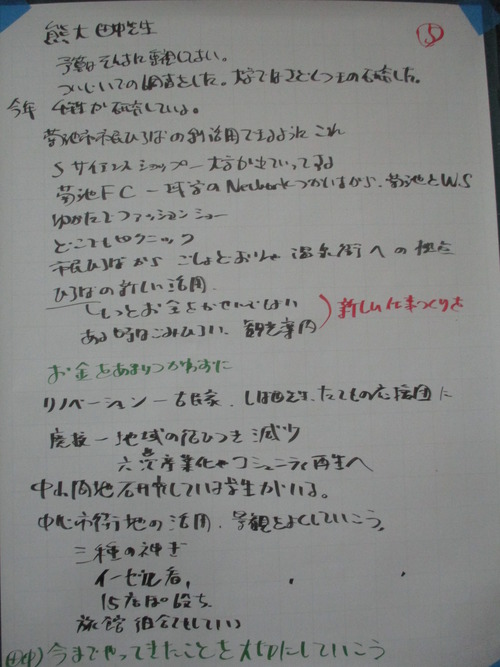 熊大 田中先生
⑤
予算はそんなに重視してない。
ついじいての調査をした。
今年 4年生が研究している。
菊池市市民ひろばの利活用できるように これ
S サイエンスショップー大学が出ていってる
菊池FC ー 大学のNetworkつかいながら、菊池とW.S
ゆかたでファッションショー
どこでもピクニック
市民ひろばから ごしょどおりや 温泉街への拠点
ひろばの新しい活用
もっとお金をかせいでほしい
ある時はごみひろい、観光案内
新しい仕事づくりを
お金をあまりつかわずに
リノベーション ー 古民家、たてもの応援団に
廃校 ー 地域の結びつき減少
六次産業化やコミュニティ再生へ
中山間地 研究している学生がいる。
中心市街地の活用、景観をよくしていこう。
三種の神ぎ
イーゼル看,
15店ぽ 役立ち
旅館 組合もしていく
(田中) 今までやってきたことを大切にしていこう